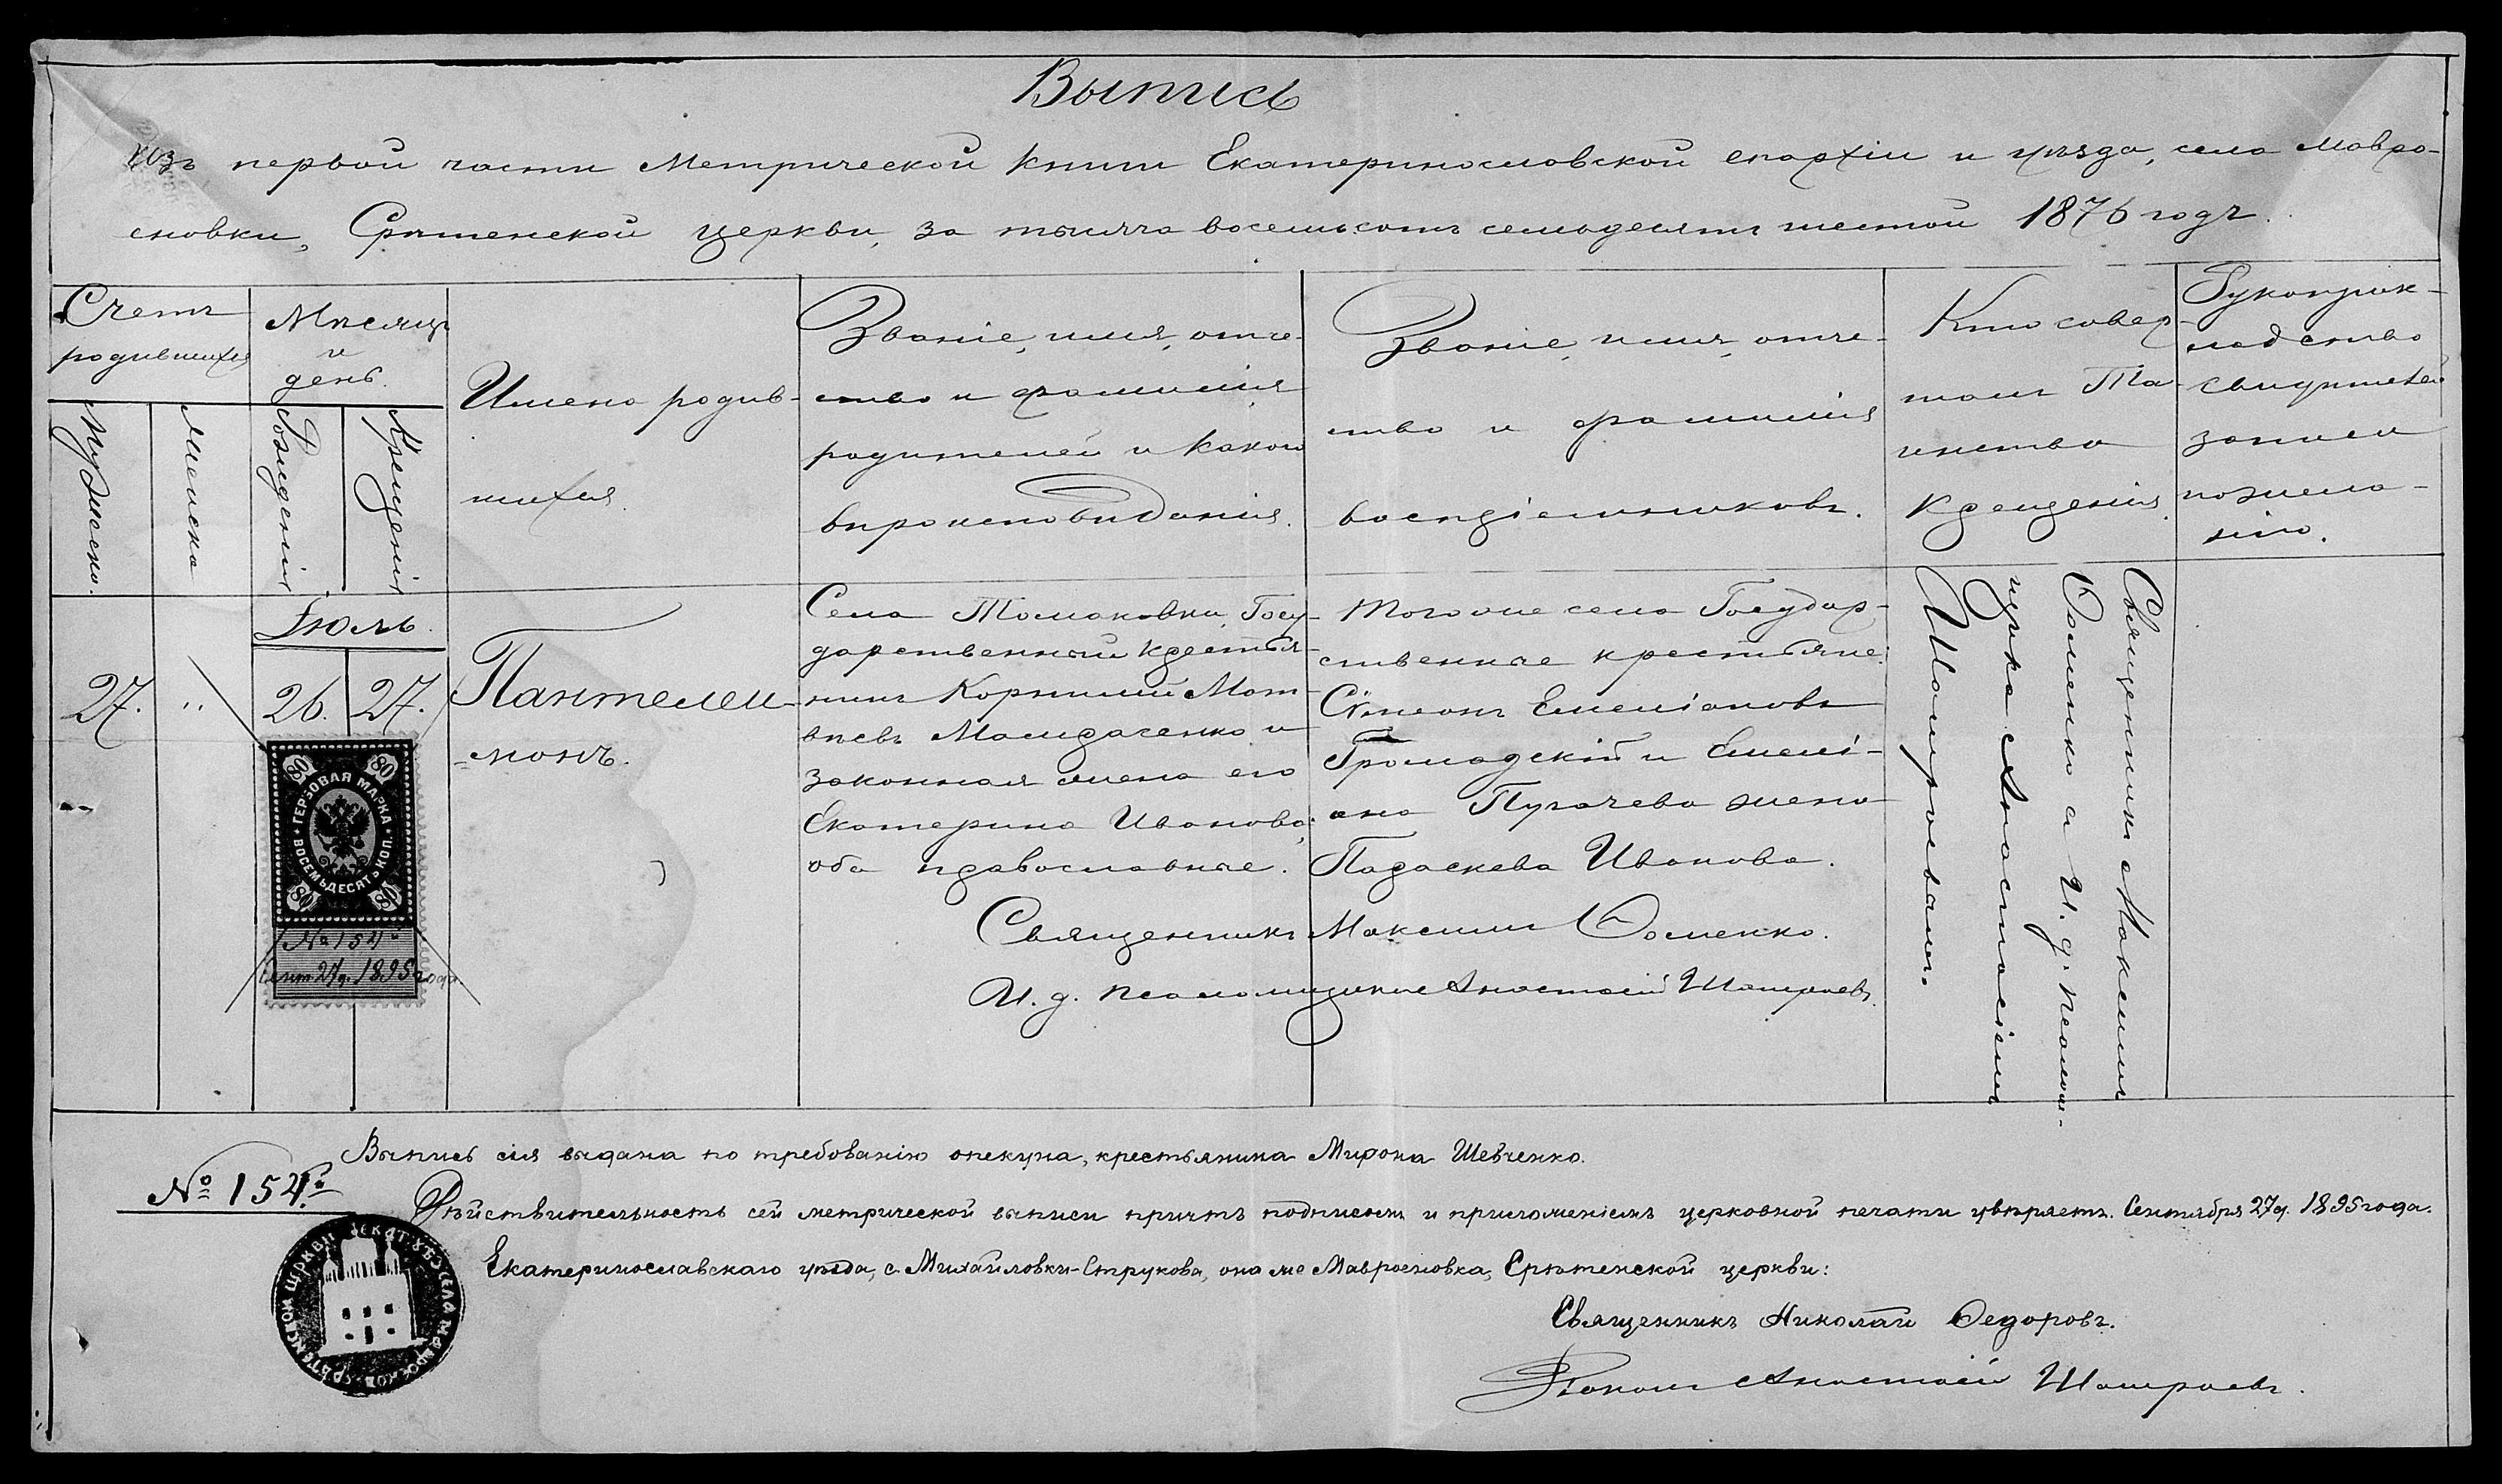 Выпись
Изъ первой части Метрической книги Екатеринославской епархіи и уѣзда, села Мавро-
еновки, Срѣтенской церкви, за тысяча восемьсотъ семьдесятъ шестой 1876 годъ.
Счетъ
родившихся
Мужеска.
Женска
Мѣсяцъ
и
день.
Рожденія
Крещенія
Имена родив-
шихся.
Званіе, имя, отче-
ство и фамилія
родителей и какого
вѣроисповѣданія.
Званіе, имя, отче-
ство и фамилія
воспріемниковъ.
Кто совер-
шалъ Та-
инство
крещенія.
Рукоприк-
ладство
свидѣтелей
записи
по жела-
нію.
Іюль.
27.
"
26.
27.
Пантелеи-
-монъ.
Села Томаковки, Госу-
дарственный крестья-
нинъ Корнилій Мат-
вѣевъ и
законная жена его
Екатерина Иванова,
оба православные.
Того же села Государ-
ственные крестьяне:
Сѵмеонъ Емеліановъ
Громадскій и Емелі-
ана Пугачева жена
Параскева Иванова.
Священникъ Максимъ Ѳоменко.
И. д. псаломщика Анастасій Шаираевъ.
Священникъ Максимъ
Ѳоменко съ И. д. псалом-
щика Анастасіемъ
80 80
ГЕРБОВАЯ МАРКА
ВОСЕМЬДЕСЯТЪ КОП.
80 80
№ 154й
Сент. 27 д. 1895 года.
Выпись сія выдана по требованію опекуна, крестьянина Мирона Шевченко.
№ 154й
Дѣйствительность сей метрической выписи причтъ подписомъ и приложеніемъ церковной печати увѣряетъ. Сентября 27 д. 1895 года.
Екатеринославскаго уѣзда, с. Михайловки-Струкова, она же Мавроеновка, Срѣтенской церкви:
Священникъ Николай Ѳедоровъ.
Діаконъ Анастасій Шаираевъ.